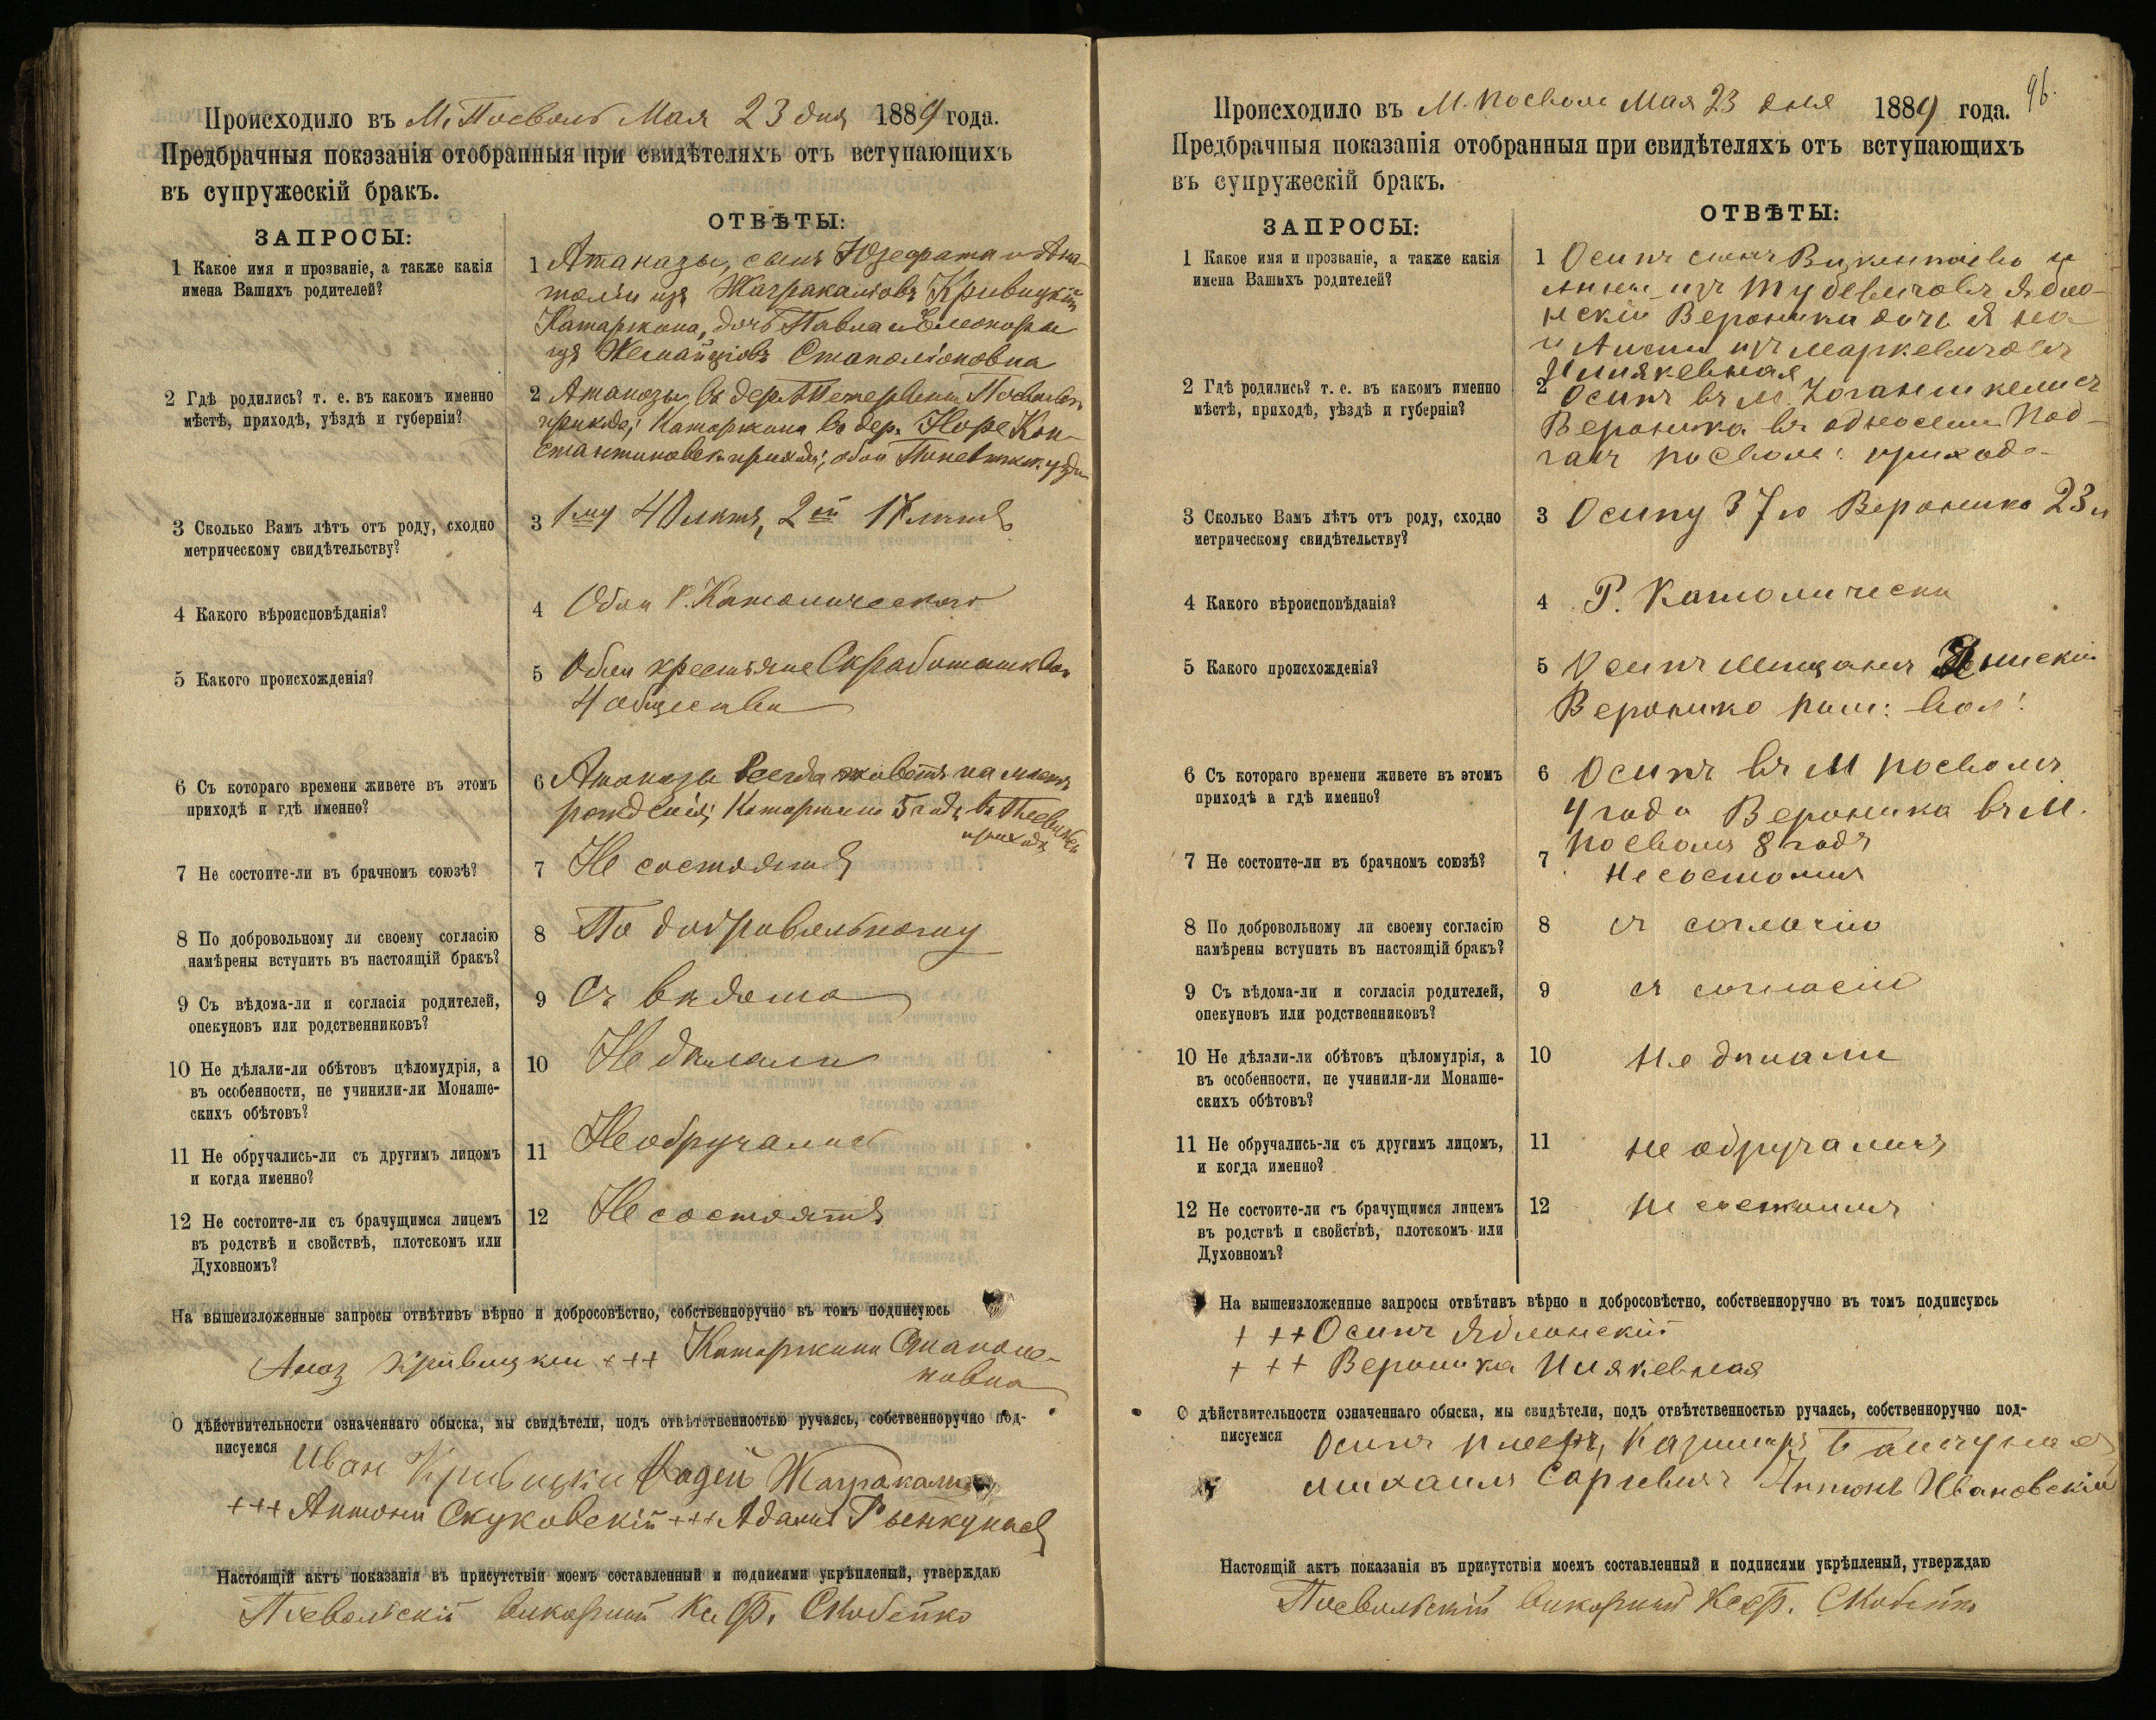 Происходило въ М. Посволь Мая 23 дня 1889 года.
Предбрачныя показанія отобранныя при свидѣтеляхъ отъ вступающихъ
въ супружескій бракъ.
ЗАПРОСЫ:
ОТВѢТЫ:
1 Какое имя и прозваніе, а также какія
имена Вашихъ родителей?
1 Атаназы, сынъ Юзефата и Ана-
толіи изъ Жагракалговъ Кривицкій
Катаржина, дочь Павла и Элеоноры
изъ Стаполіоновна
2 Гдѣ родились? т. е. въ какомъ именно
мѣстѣ, приходѣ, уѣздѣ и губерніи?
2 Атаназы въ дер. Посвольск.
прихода; Катаржина въ дер. Кон-
стантиновск. прихода; обои Поневежск. уѣзда
3 Сколько Вамъ лѣтъ отъ роду, сходно
метрическому свидѣтельству?
3 1му 40 лѣтъ, 2ой 17 лѣтъ
4 Какого вѣроисповѣданія?
4 Обои Р. Католическаго
5 Какого происхожденія?
5 Обои крестьяне Скработишк. вол.
4 общества
6 Съ котораго времени живете въ этомъ
приходѣ и гдѣ именно?
6 Атаназы всегда живетъ на мѣстѣ
рожденія; Катаржина 5 годъ въ
приходѣ
7 Не состоите-ли въ брачномъ союзѣ?
7 Не состоятъ
8 По добровольному ли своему согласію
намѣрены вступить въ настоящій бракъ?
8 По добровольному
9 Съ вѣдома-ли и согласія родителей,
опекуновъ или родственниковъ?
9 Съ вѣдома
10 Не дѣлали-ли обѣтовъ цѣломудрія, а
въ особенности, не учинили-ли Монаше-
скихъ обѣтовъ?
10 Не дѣлали
11 Не обручались-ли съ другимъ лицомъ
и когда именно?
11 Необручались
12 Не состоите-ли съ брачущимся лицемъ
въ родствѣ и свойствѣ, плотскомъ или
Духовномъ?
12 Не состоятъ
На вышеизложенные запросы отвѣтивъ вѣрно и добросовѣстно, собственноручно въ томъ подписуюсь
Кривицкій +++ Катаржина Стаполе-
новна
О дѣйствительности означеннаго обыска, мы свидѣтели, подъ отвѣтственностью ручаясь, собственноручно под-
писуемся
Иван Кривицки Фадей
+++ Антоній Скуковскій +++ Адамъ
Настоящій актъ показанія въ присутствіи моемъ составленный и подписями укрѣпленый, утверждаю
Посвольскій викарный Кс. Ф. Скобейко
96.
Происходило въ М. Посволе Мая 23 дня 1889 года.
Предбрачныя показанія отобранныя при свидѣтеляхъ отъ вступающихъ
въ супружескій бракъ.
ЗАПРОСЫ:
ОТВѢТЫ:
1 Какое имя и прозваніе, а также какія
имена Вашихъ родителей?
1 Осипъ сынъ Викентіево и
Анны изъ Ябло-
нскій Вероника дочь Яна
и Анны изъ Маркевичовъ
Илякевная
2 Гдѣ родились? т. е. въ какомъ именно
мѣстѣ, приходѣ, уѣздѣ и губерніи?
2 Осипъ въ М. Іоганишкелисъ
Вероника въ односели Под-
гаи Посвол: прихода
3 Сколько Вамъ лѣтъ отъ роду, сходно
метрическому свидѣтельству?
3 Осипу 37 ю Вероника 23 л
4 Какого вѣроисповѣданія?
4 Р. Католически
5 Какого происхожденія?
5 Осипъ мищанинъ
Вероника вол:
6 Съ котораго времени живете въ этомъ
приходѣ и гдѣ именно?
6 Осипъ въ М Посволъ
4 года Вероника въ М.
Посволъ 8 годъ
7 Не состоите-ли въ брачномъ союзѣ?
7 Не состоятъ
8 По добровольному ли своему согласію
намѣрены вступить въ настоящій бракъ?
8 съ согласію
9 Съ вѣдома-ли и согласія родителей,
опекуновъ или родственниковъ?
9 съ согласій
10 Не дѣлали-ли обѣтовъ цѣломудрія, а
въ особенности, не учинили-ли Монаше-
скихъ обѣтовъ?
10 Не дѣлали
11 Не обручались-ли съ другимъ лицомъ,
и когда именно?
11 не обручались
12 Не состоите-ли съ брачущимся лицемъ
въ родствѣ и свойствѣ, плотскомъ или
Духовномъ?
12 Не состоятъ
На вышеизложенные запросы отвѣтивъ вѣрно и добросовѣстно, собственноручно въ томъ подписуюсь
+ ++ Осипъ Яблонскій
+ + + Вероника Илякевная
О дѣйствительности означеннаго обыска, мы свидѣтели, подъ отвѣтственностью ручаясь, собственноручно под-
писуемся
Осипъ Казимиръ
Михаилъ Антонъ Ивановскій
Настоящій актъ показанія въ присутствіи моемъ составленный и подписями укрѣпленый, утверждаю
Посвольскій викарный Кс Ф. Скобейко